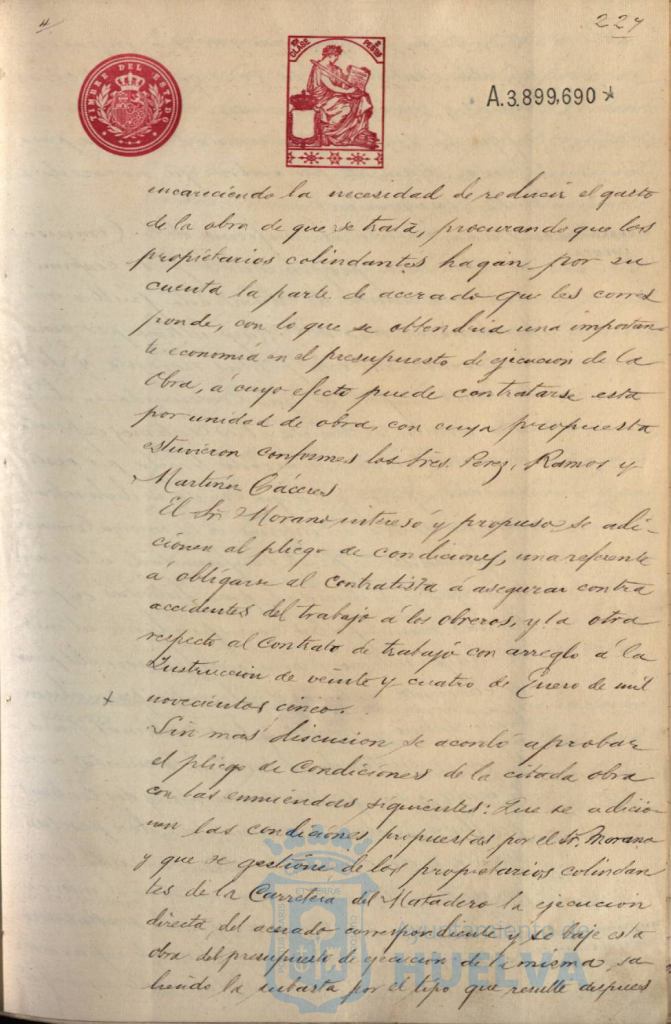 4
227
TIMBRE DEL ESTADO
CLASE
A.3.899,690
encareciendo la necesidad de reducir el gasto
de la obra de que se trata, procurando que los
propietarios colindantes hagan por su
cuenta la parte de acerado que les corres
ponde, con lo que se obtendria una importan
te economia en el presupuesto de ejecucion de la
obra, á cuyo efecto puede contratarse esta
por unidad de obra, con cuya propuesta
estuvieron conformes los Sres. Perez, Ramos y
Martinez Cáceres
El Sr. Morano interesó y propuso se adi-
cionen al pliego de condiciones, una referente
á obligarse al contratista á asegurar contra
accidentes del trabajo á los obreros, y la otra
respecto al contrato de trabajo con arreglo á la
Instruccion de veinte y cuatro de Enero de mil
novecientos cinco.
Sin mas discusion se acordó aprobar
el pliego de condiciones de la citada obra
con las enmiendas siguientes: Que se adicio
nen las condiciones propuestas por el Sr. Morano
y que se gestione de los propietarios colindan
tes de la Carretera del Matadero la ejecucion
directa del acerado correspondiente y se baje esta
obra del presupuesto de ejecucion de la misma, sa
liendo la subasta por el tipo que resulte despues
Ayuntamiento de
HUELVA